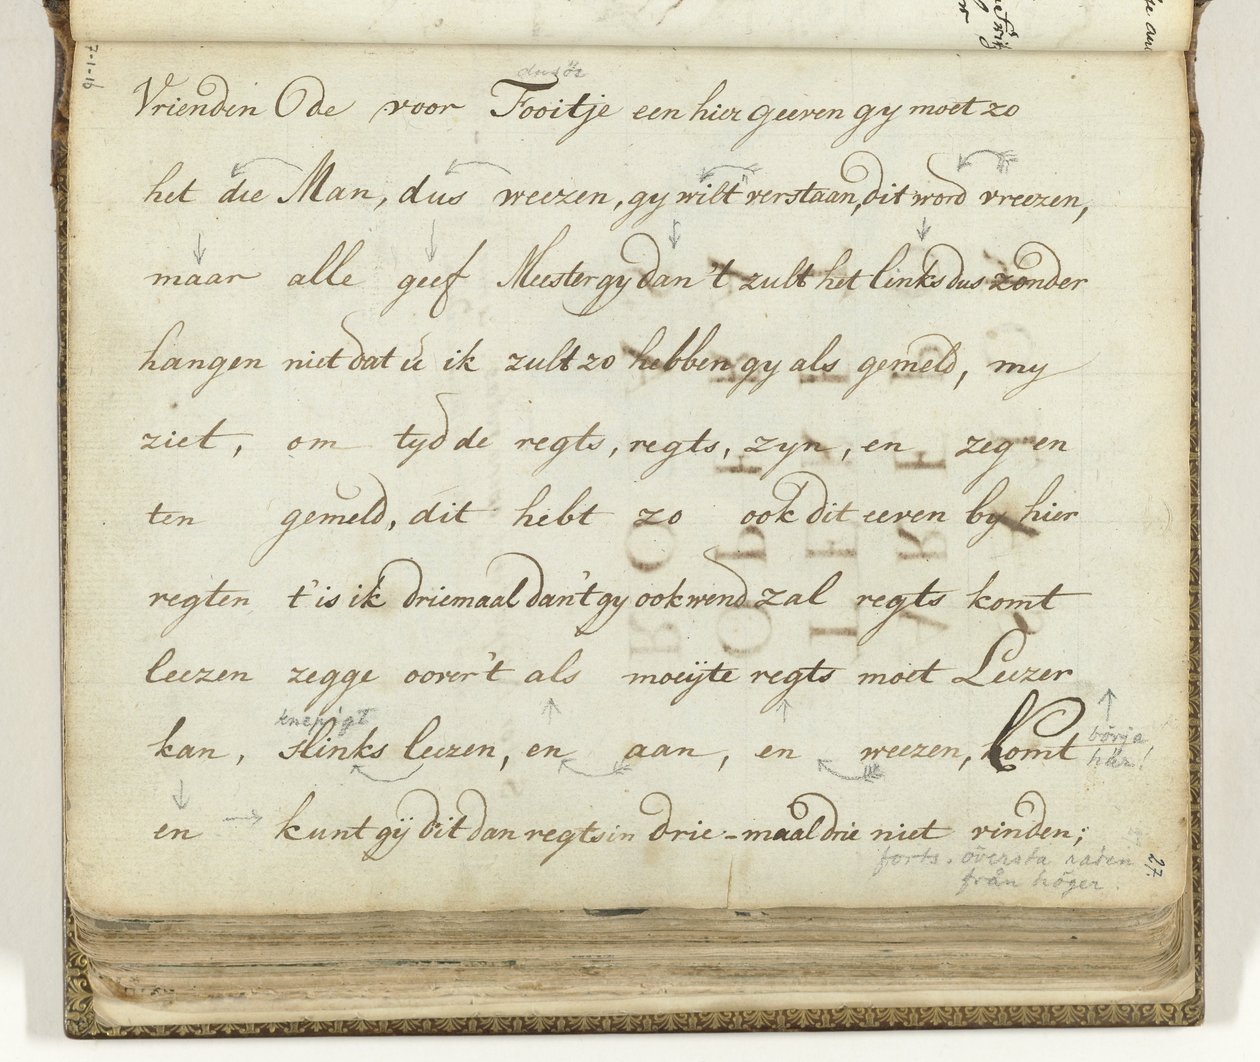 Vrienden Ode voor Fooitje een hier geeven gy moet zo
het die Man, dus weezen, gy wilt verstaan, dit word vreezen,
maar alle geef Meester gy dan 't zult het links dus zonder
hangen niet dat u ik zult zo hebben gy als gemeld, my
ziet, om tyd de regts, regts, zyn, en zeg en
ten gemeld, dit hebt zo ook dit eeven by hier
regten t'is ik driemaal dan't gy ook wend zal regts komt
leezen zegge over't als moeijte regts moet Leezer
kan, slinks leezen, en aan, en weezen, komt
börja
här!
en kunt gij dit dan regts in drie-maal drie niet vinden;
forts. översta raden
från höger.
27.
7-1-16